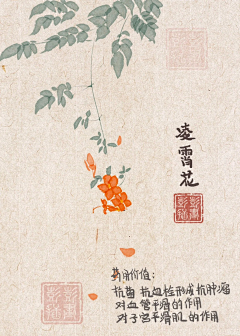 凌霄花
药用价值：
抗菌 抗血栓形成 抗肿瘤
对血管平滑肌的作用
对子宫平滑肌的作用